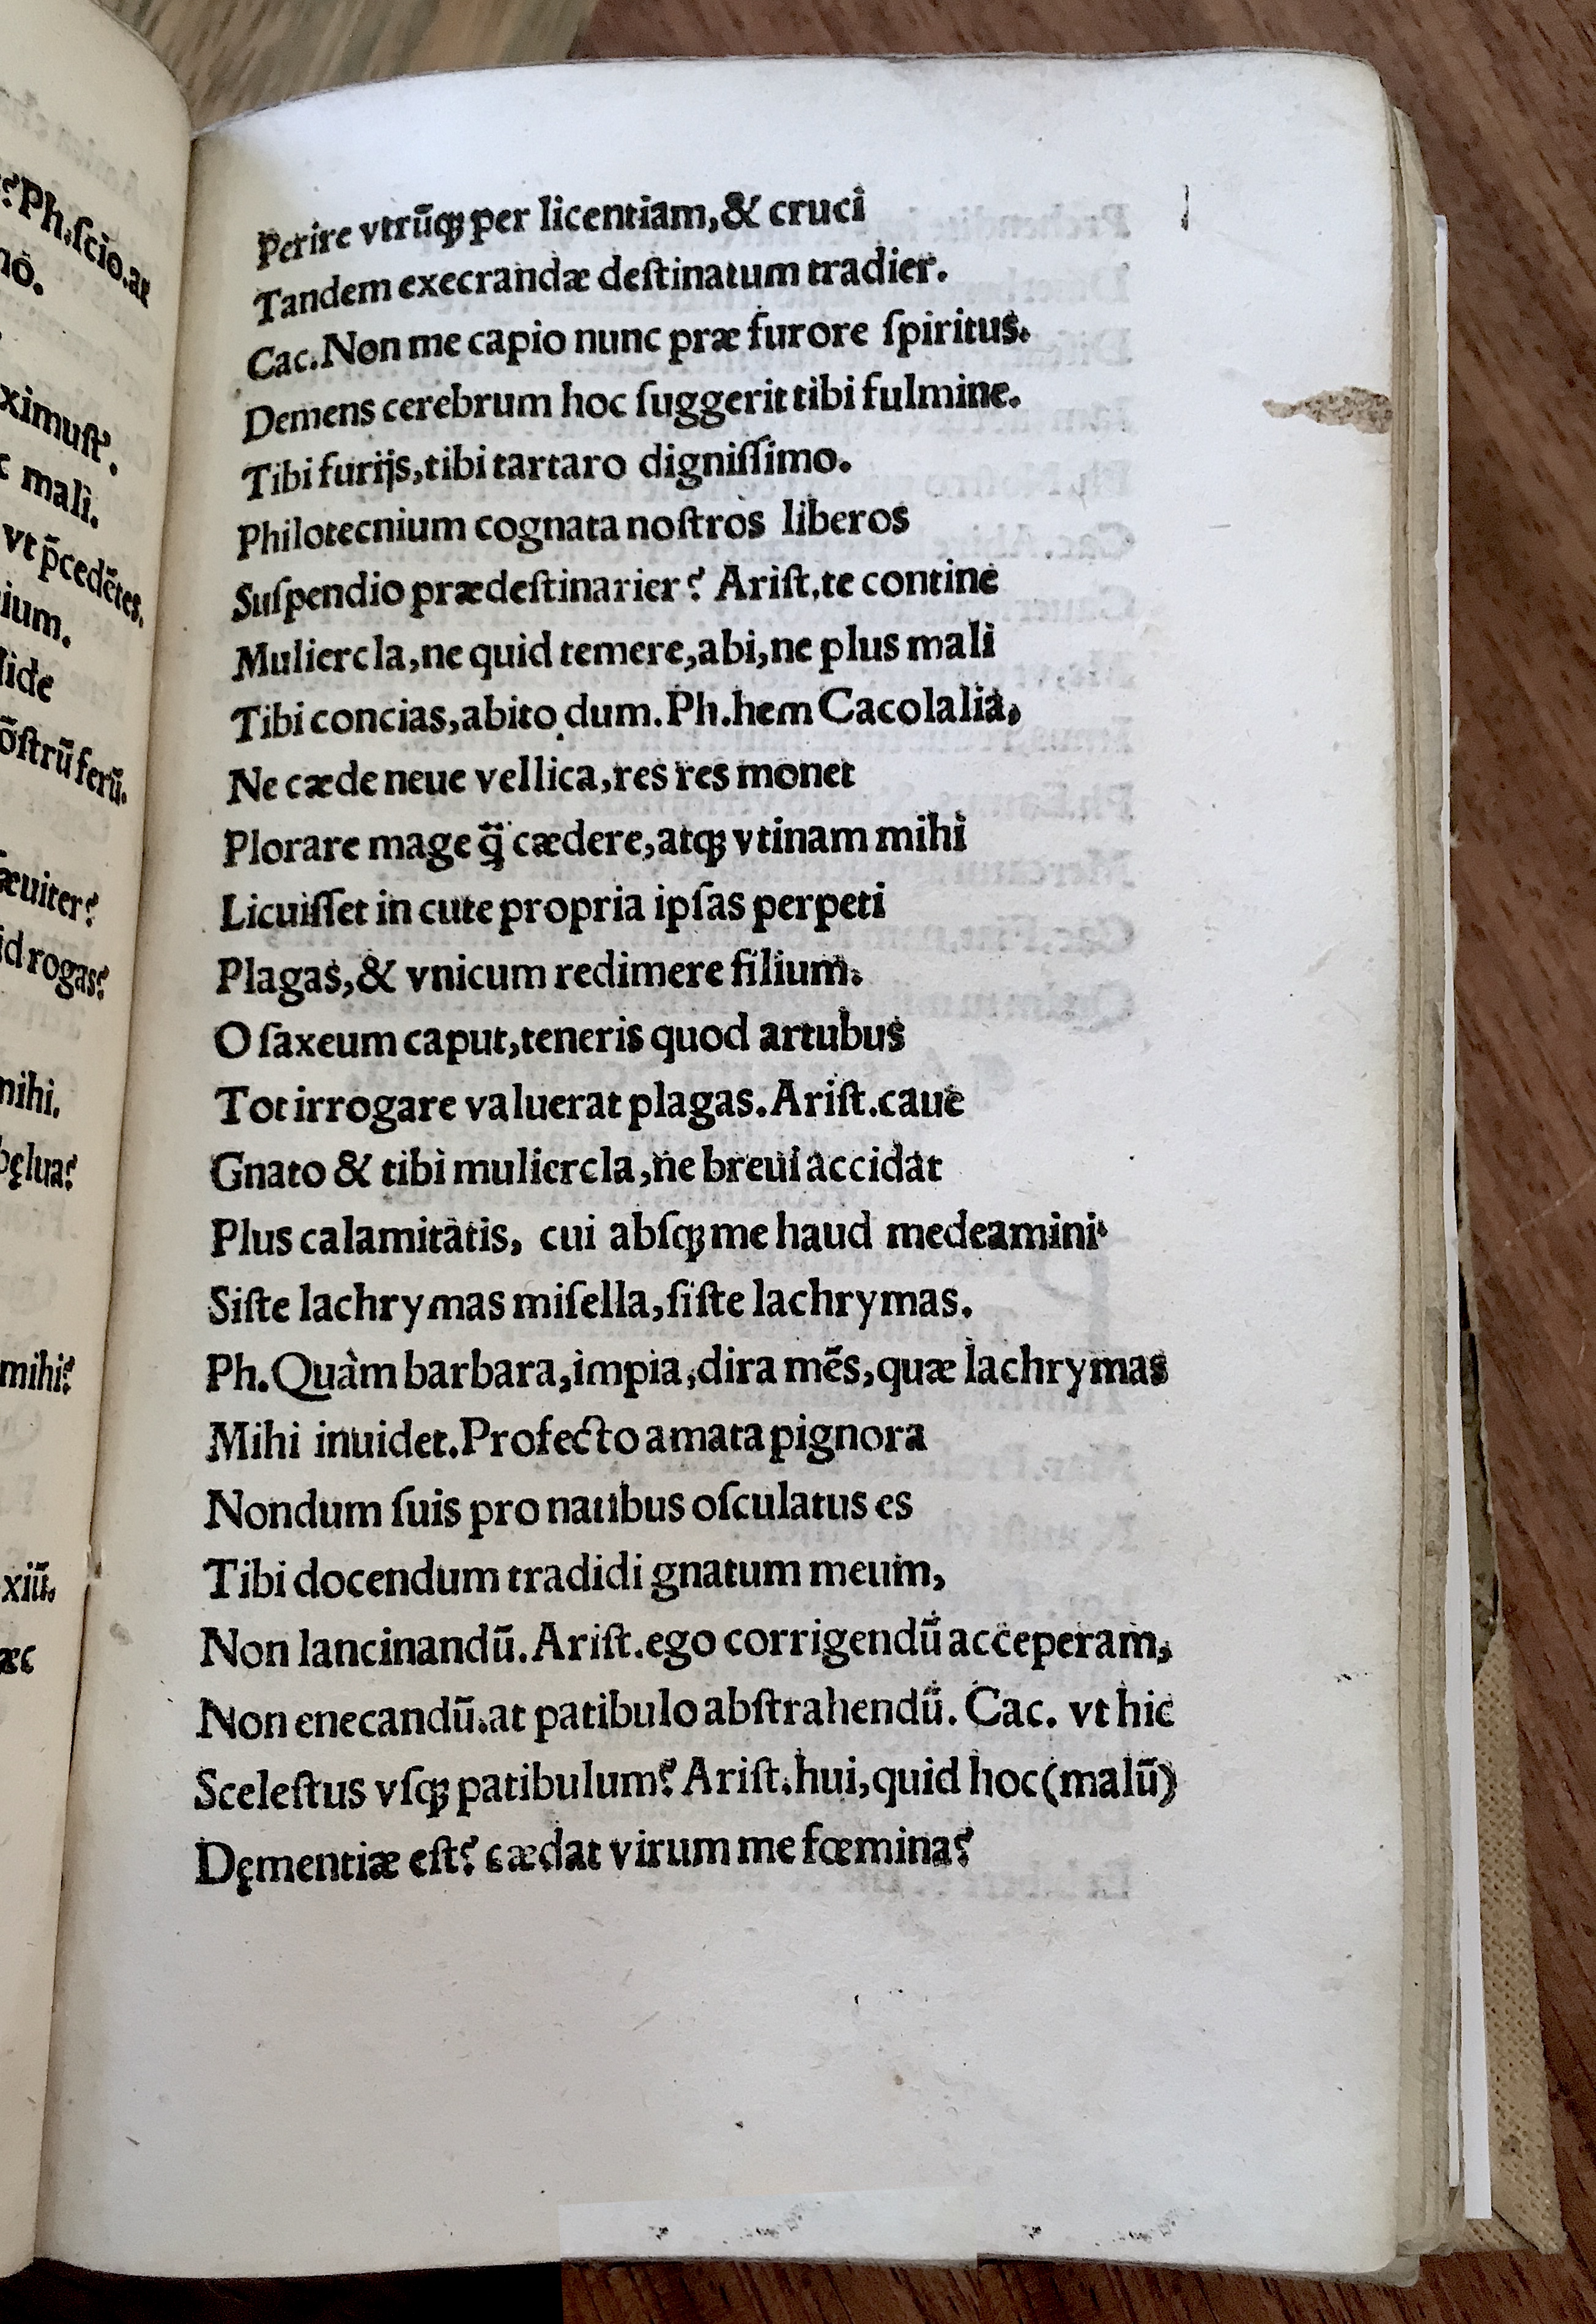 Perire vtrūqꝫ per licentiam,& cruci
Tandem execrandæ deſtinatum tradier.
Cac.Non me capio nunc præ furore ſpiritus.
Demens cerebrum hoc ſuggerit tibi fulmine.
Tibi furijs,tibi tartaro digniſſimo.
Philotecnium cognata noſtros liberos
Suſpendio prædeſtinarier? Ariſt.te contine
Muliercla,ne quid temere,abi,ne plus mali
Tibi concias,abito dum.Ph.hem Cacolalia,
Ne cæde neue vellica,res res monet
Plorare mage q̄ cædere,atqꝫ vtinam mihi
Licuiſſet in cute propria ipſas perpeti
Plagas,& vnicum redimere filium.
O ſaxeum caput,teneris quod artubus
Tot irrogare valuerat plagas.Ariſt.caue
Gnato & tibi muliercla,ne breui accidat
Plus calamitatis, cui abſqꝫ me haud medeamini.
Siſte lachrymas miſella,ſiſte lachrymas.
Ph.Quàm barbara,impia,dira mēs,quæ lachrymas
Mihi inuidet.Profecto amata pignora
Nondum ſuis pro natibus oſculatus es
Tibi docendum tradidi gnatum meum,
Non lancinandū.Ariſt.ego corrigendū acceperam,
Non enecandū.at patibulo abſtrahendū. Cac. vt hic
Sceleſtus vſqꝫ patibulum? Ariſt.hui,quid hoc(malū)
Dęmentiæ eſt? cædat virum me fœmina?
Ph.ſcio.at
nō.
ximuſt'.
mali.
vt p̄cedētes.
ium.
lide
ōſtrū ferū.
æuiter?
id rogas?
mihi.
bęlua?
mihi?
xiū.